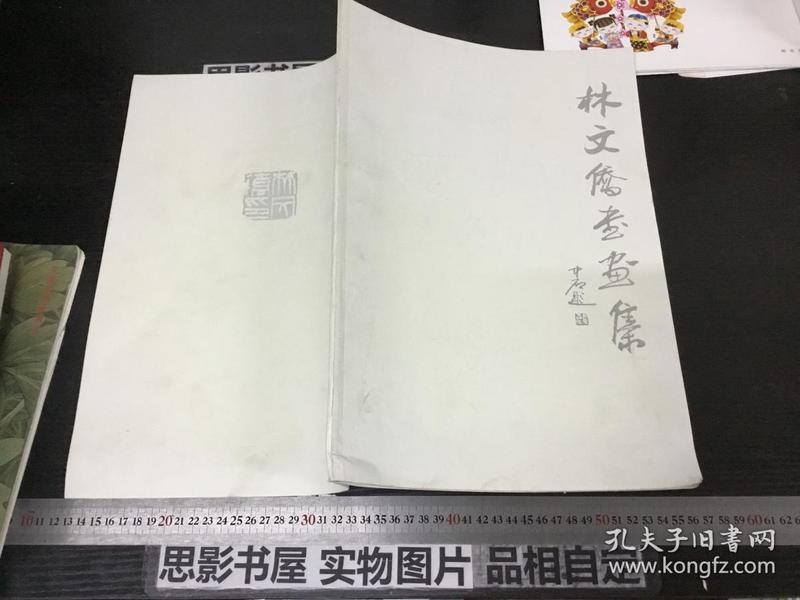 思影书屋
林文侨书画集
林文
侨印
10 11 12 13 14 15 16 17 18 19 20 21 22 23 24 25 26 27 28 29 30 31 32 33 34 35 36 37 38 39 40 41 42 43 44 45 46 47 48 49 50 51 52 53 54 55 56 57 58 59 60 61 62
思影书屋 实物图片 品相自定
孔夫子旧书网
www.kongfz.com